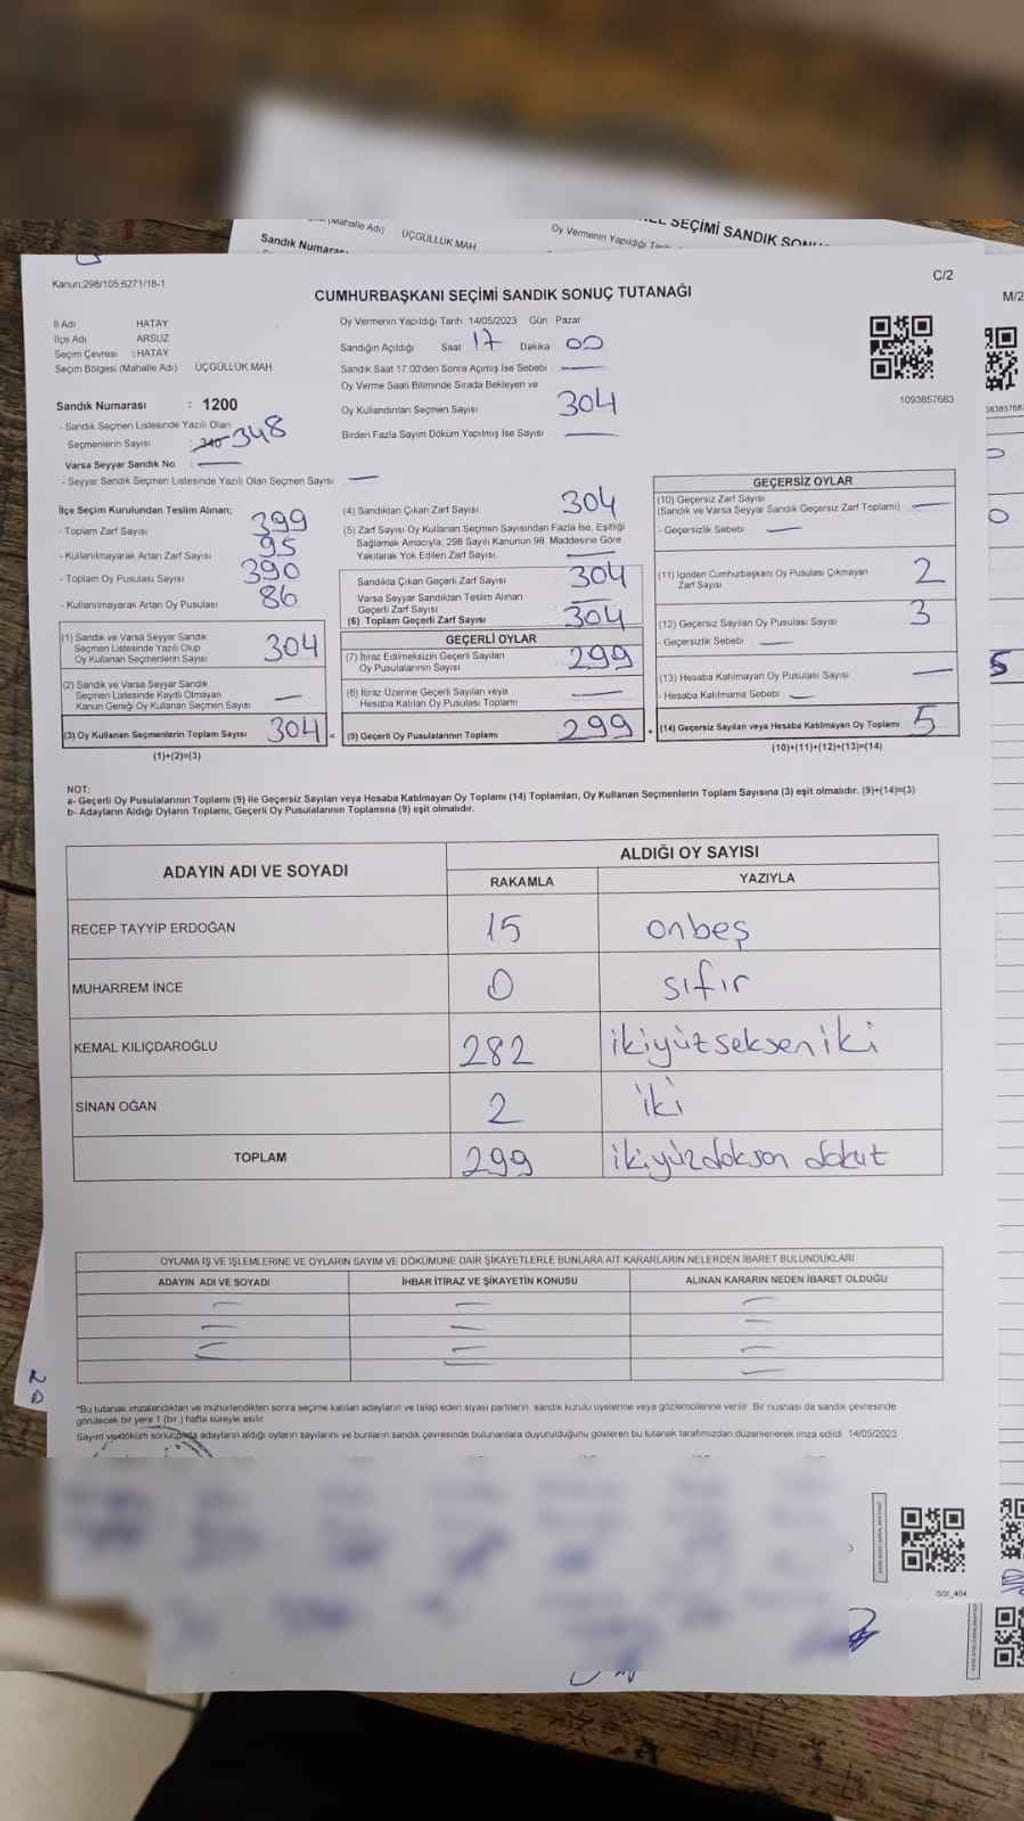 (Mahalle Adı) ÜÇGÜLLÜK MAH
Sandık Numarası
Oy Vermenin Yapıldığı
SEÇİMİ SANDIK
Kanun:298/105;6271/18-1
C/2
M/2
CUMHURBAŞKANI SEÇİMİ SANDIK SONUÇ TUTANAĞI
İl Adı HATAY
İlçe Adı ARSUZ
Seçim Çevresi : HATAY
Seçim Bölgesi (Mahalle Adı) ÜÇGÜLLÜK MAH
Sandık Numarası : 1200
- Sandık Seçmen Listesinde Yazılı Olan
Seçmenlerin Sayısı : 340 348
Varsa Seyyar Sandık No : —
- Seyyar Sandık Seçmen Listesinde Yazılı Olan Seçmen Sayısı —
Oy Vermenin Yapıldığı Tarih 14/05/2023 Gün Pazar
Sandığın Açıldığı Saat 17 Dakika 00
Sandık Saat 17.00'den Sonra Açmış İse Sebebi —
Oy Verme Saati Bitiminde Sırada Bekleyen ve
Oy Kullandırılan Seçmen Sayısı 304
Birden Fazla Sayım Döküm Yapılmış İse Sayısı —
1093857683
İlçe Seçim Kurulundan Teslim Alınan;
- Toplam Zarf Sayısı 399
- Kullanılmayarak Artan Zarf Sayısı 95
- Toplam Oy Pusulası Sayısı 390
- Kullanılmayarak Artan Oy Pusulası 86
(1) Sandık ve Varsa Seyyar Sandık
Seçmen Listesinde Yazılı Olup
Oy Kullanan Seçmenlerin Sayısı 304
(2) Sandık ve Varsa Seyyar Sandık
Seçmen Listesinde Kayıtlı Olmayan
Kanun Gereği Oy Kullanan Seçmen Sayısı —
(3) Oy Kullanan Seçmenlerin Toplam Sayısı 304
(1)+(2)=(3)
(4) Sandıktan Çıkan Zarf Sayısı 304
(5) Zarf Sayısı Oy Kullanan Seçmen Sayısından Fazla İse, Eşitliği
Sağlamak Amacıyla, 298 Sayılı Kanunun 98. Maddesine Göre
Yakılarak Yok Edilen Zarf Sayısı —
Sandıkta Çıkan Geçerli Zarf Sayısı 304
Varsa Seyyar Sandıktan Teslim Alınan
Geçerli Zarf Sayısı —
(6) Toplam Geçerli Zarf Sayısı 304
GEÇERLİ OYLAR
(7) İtiraz Edilmeksizin Geçerli Sayılan
Oy Pusulalarının Sayısı 299
(8) İtiraz Üzerine Geçerli Sayılan veya
Hesaba Katılan Oy Pusulası Toplamı —
(9) Geçerli Oy Pusulalarının Toplamı 299
GEÇERSİZ OYLAR
(10) Geçersiz Zarf Sayısı
(Sandık ve Varsa Seyyar Sandık Geçersiz Zarf Toplamı) —
- Geçersizlik Sebebi —
(11) İçinden Cumhurbaşkanı Oy Pusulası Çıkmayan
Zarf Sayısı 2
(12) Geçersiz Sayılan Oy Pusulası Sayısı 3
- Geçersizlik Sebebi —
(13) Hesaba Katılmayan Oy Pusulası Sayısı —
- Hesaba Katılmama Sebebi —
(14) Geçersiz Sayılan veya Hesaba Katılmayan Oy Toplamı 5
(10)+(11)+(12)+(13)=(14)
5
NOT:
a- Geçerli Oy Pusulalarının Toplamı (9) ile Geçersiz Sayılan veya Hesaba Katılmayan Oy Toplamı (14) Toplamları, Oy Kullanan Seçmenlerin Toplam Sayısına (3) eşit olmalıdır. (9)+(14)=(3)
b- Adayların Aldığı Oyların Toplamı, Geçerli Oy Pusulalarının Toplamına (9) eşit olmalıdır.
ADAYIN ADI VE SOYADI ALDIĞI OY SAYISI
RAKAMLA YAZIYLA
RECEP TAYYİP ERDOĞAN 15 onbeş
MUHARREM İNCE 0 sıfır
KEMAL KILIÇDAROĞLU 282 ikiyüzsekseniki
SİNAN OĞAN 2 iki
TOPLAM 299 ikiyüzdokson dokuz
OYLAMA İŞ VE İŞLEMLERİNE VE OYLARIN SAYIM VE DÖKÜMÜNE DAİR ŞİKAYETLERLE BUNLARA AİT KARARLARIN NELERDEN İBARET BULUNDUKLARI
ADAYIN ADI VE SOYADI İHBAR İTİRAZ VE ŞİKAYETİN KONUSU ALINAN KARARIN NEDEN İBARET OLDUĞU
"Bu tutanak imzalandıktan ve mühürlendikten sonra seçime katılan adayların ve talep eden siyasi partilerin sandık kurulu üyelerine veya gözlemcilerine verilir. Bir nüshası da sandık çevresinde
görülecek bir yere 1 (bir) hafta süreyle asılır.
Sayım ve döküm sonucunda adayların aldığı oyların sayılarını ve bunların sandık çevresinde bulunanlara duyurulduğunu gösteren bu tutanak tarafımızdan düzenlenerek imza edildi. 14/05/2023